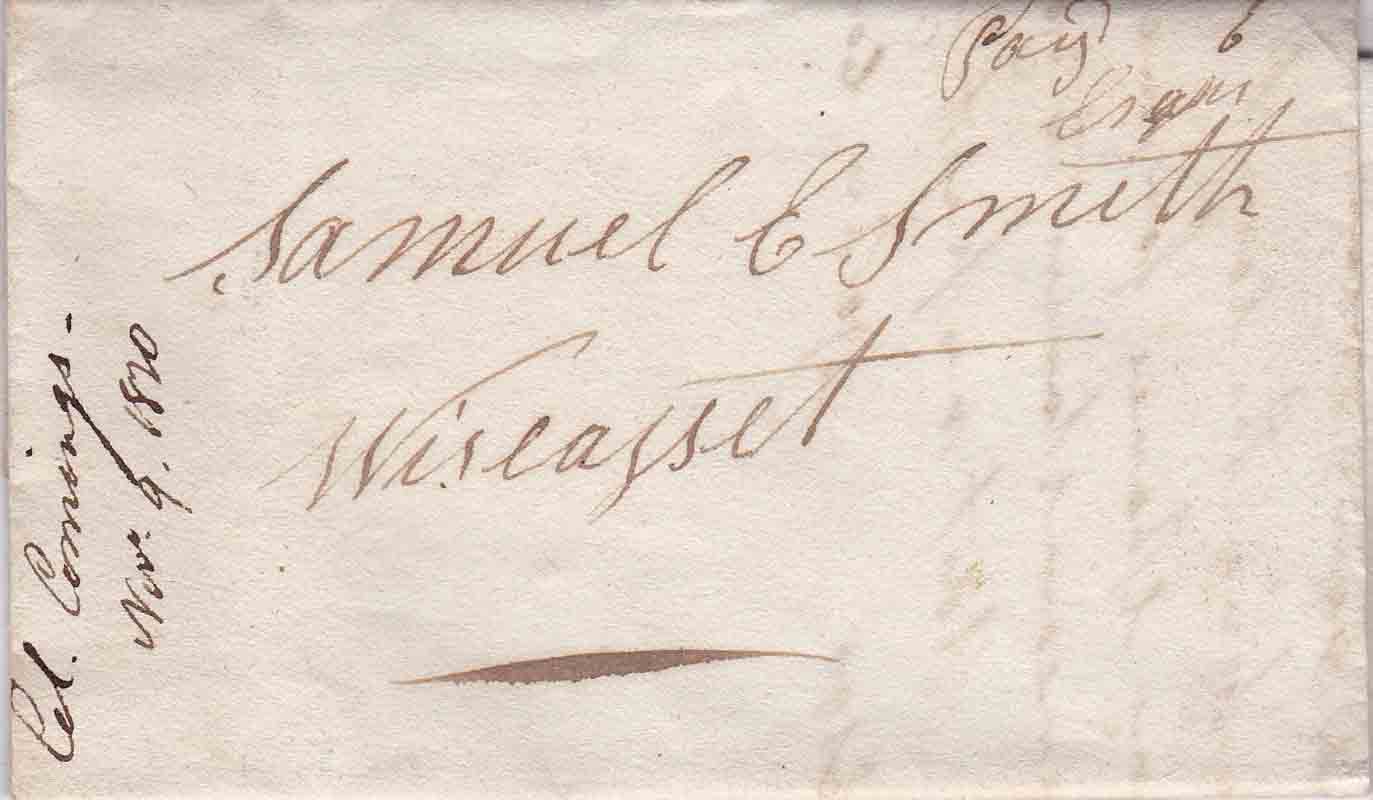 Paid 6
Samuel E Smith
Wiscasset
Col. Comings -
Nov. 9. 1820